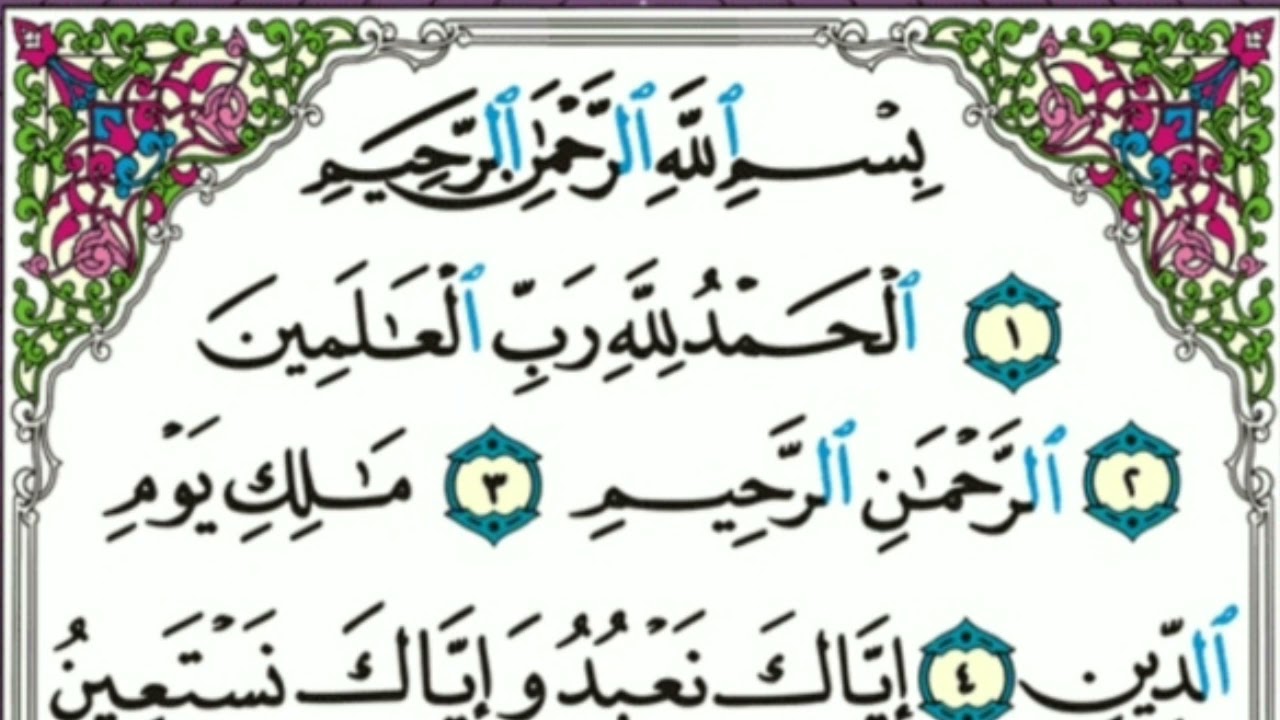 بِسْمِ ٱللَّهِ ٱلرَّحْمَٰنِ ٱلرَّحِيمِ
١ ٱلْحَمْدُ لِلَّهِ رَبِّ ٱلْعَـٰلَمِينَ
٢ ٱلرَّحْمَـٰنِ ٱلرَّحِيمِ ٣ مَـٰلِكِ يَوْمِ
ٱلدِّينِ ٤ إِيَّاكَ نَعْبُدُ وَإِيَّاكَ نَسْتَعِينُ